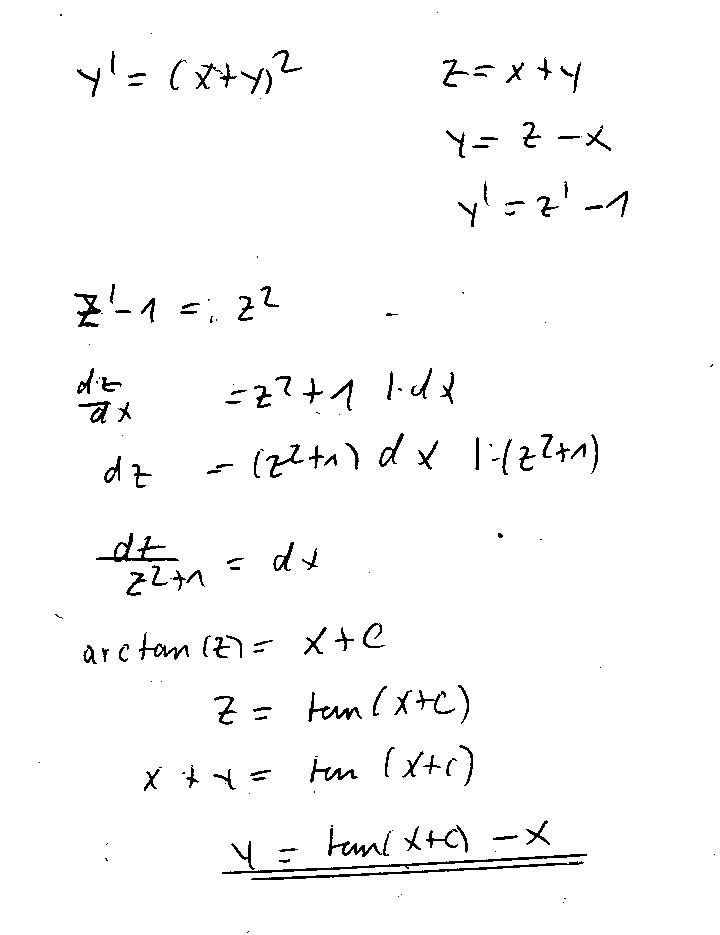 y' = (x+y)²
z = x + y
y = z - x
y' = z' - 1
z' - 1 = z²
dz/dx = z² + 1 |·dx
dz = (z²+1) dx |:(z²+1)
dz/(z²+1) = dx
arctan(z) = x + C
z = tan(x+C)
x + y = tan(x+C)
y = tan(x+C) - x